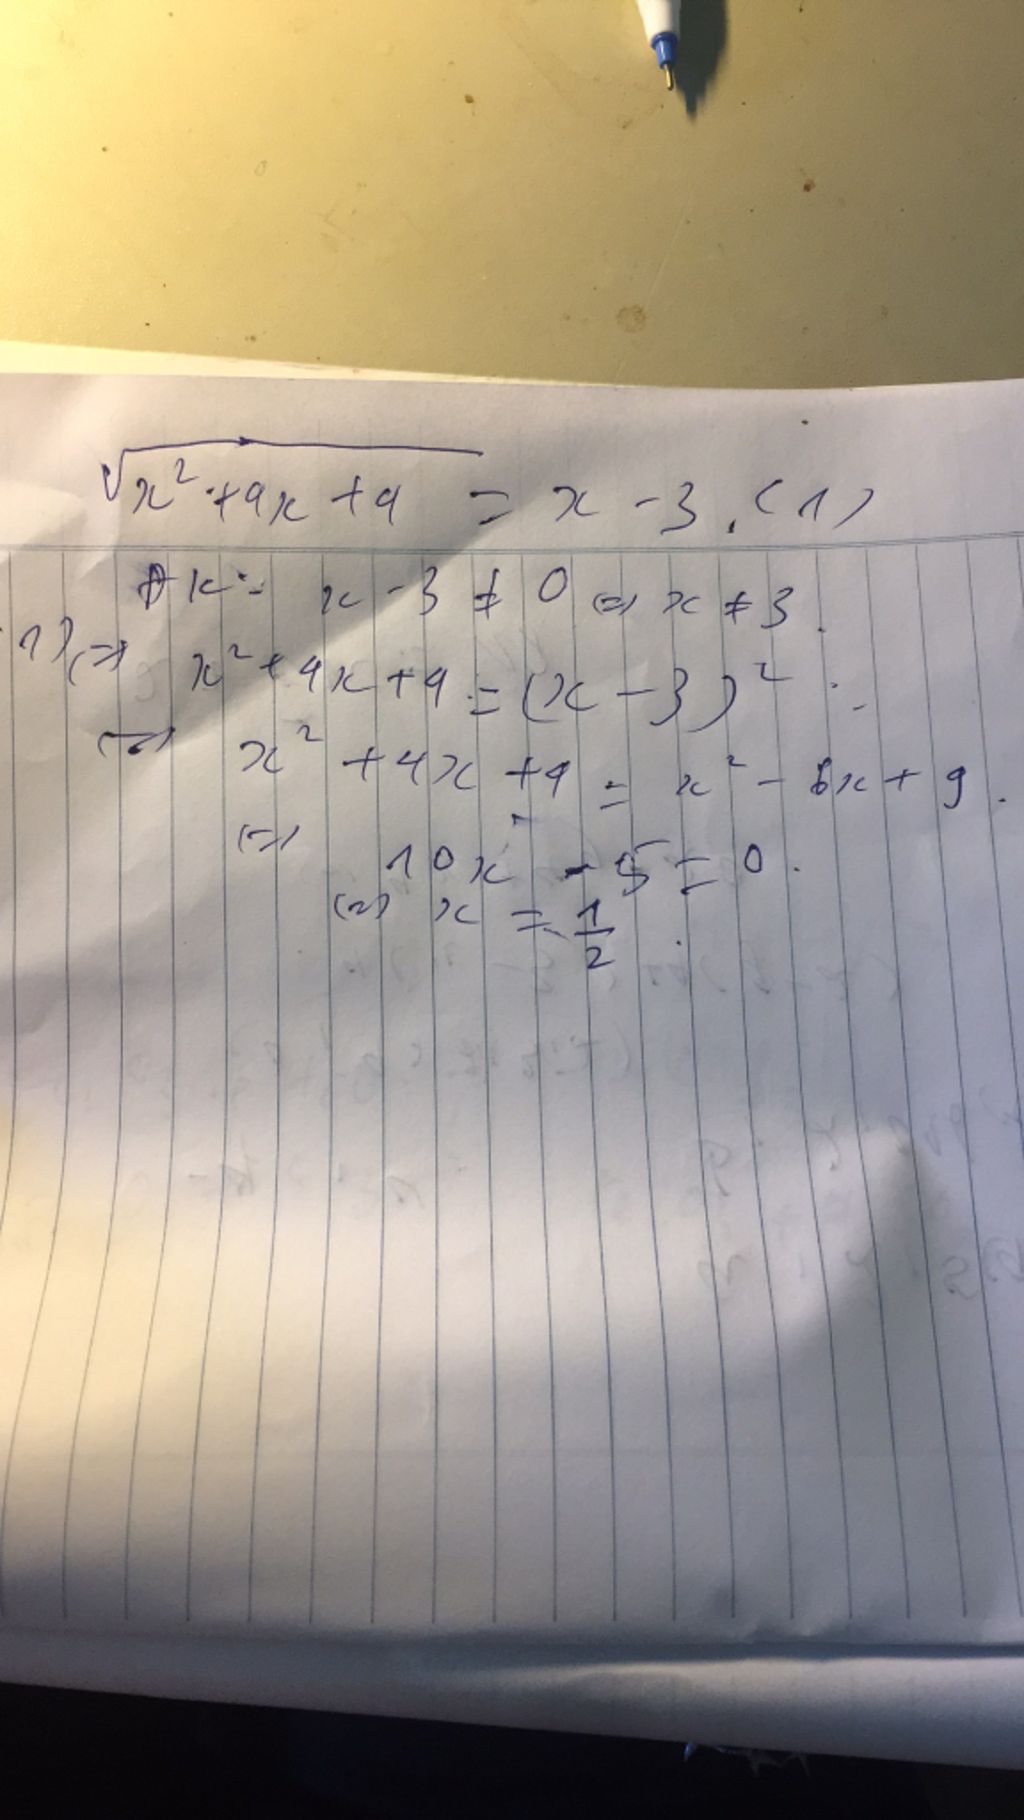 √(x² + 4x + 4) = x - 3. (1)
ĐK: x - 3 ≠ 0 (=) x ≠ 3.
1) (=) x² + 4x + 4 = (x - 3)².
(=) x² + 4x + 4 = x² - 6x + 9.
(=) 10x - 5 = 0.
(=) x = 1/2.